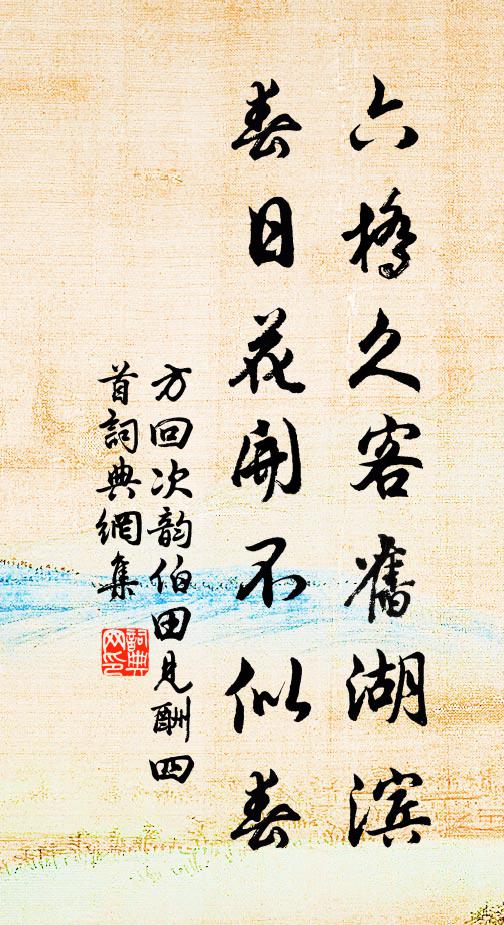 六橋久客舊湖滨
春日花開不似春
方回次韵伯田見酬四
首詞典網集
詞典
网印